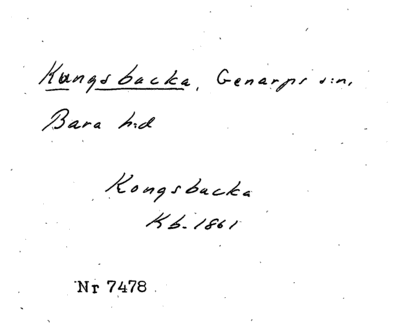 Kungsbacka, Genarps s:n,
Bara h:d
Kongsbacka
Kb. 1861
Nr 7478